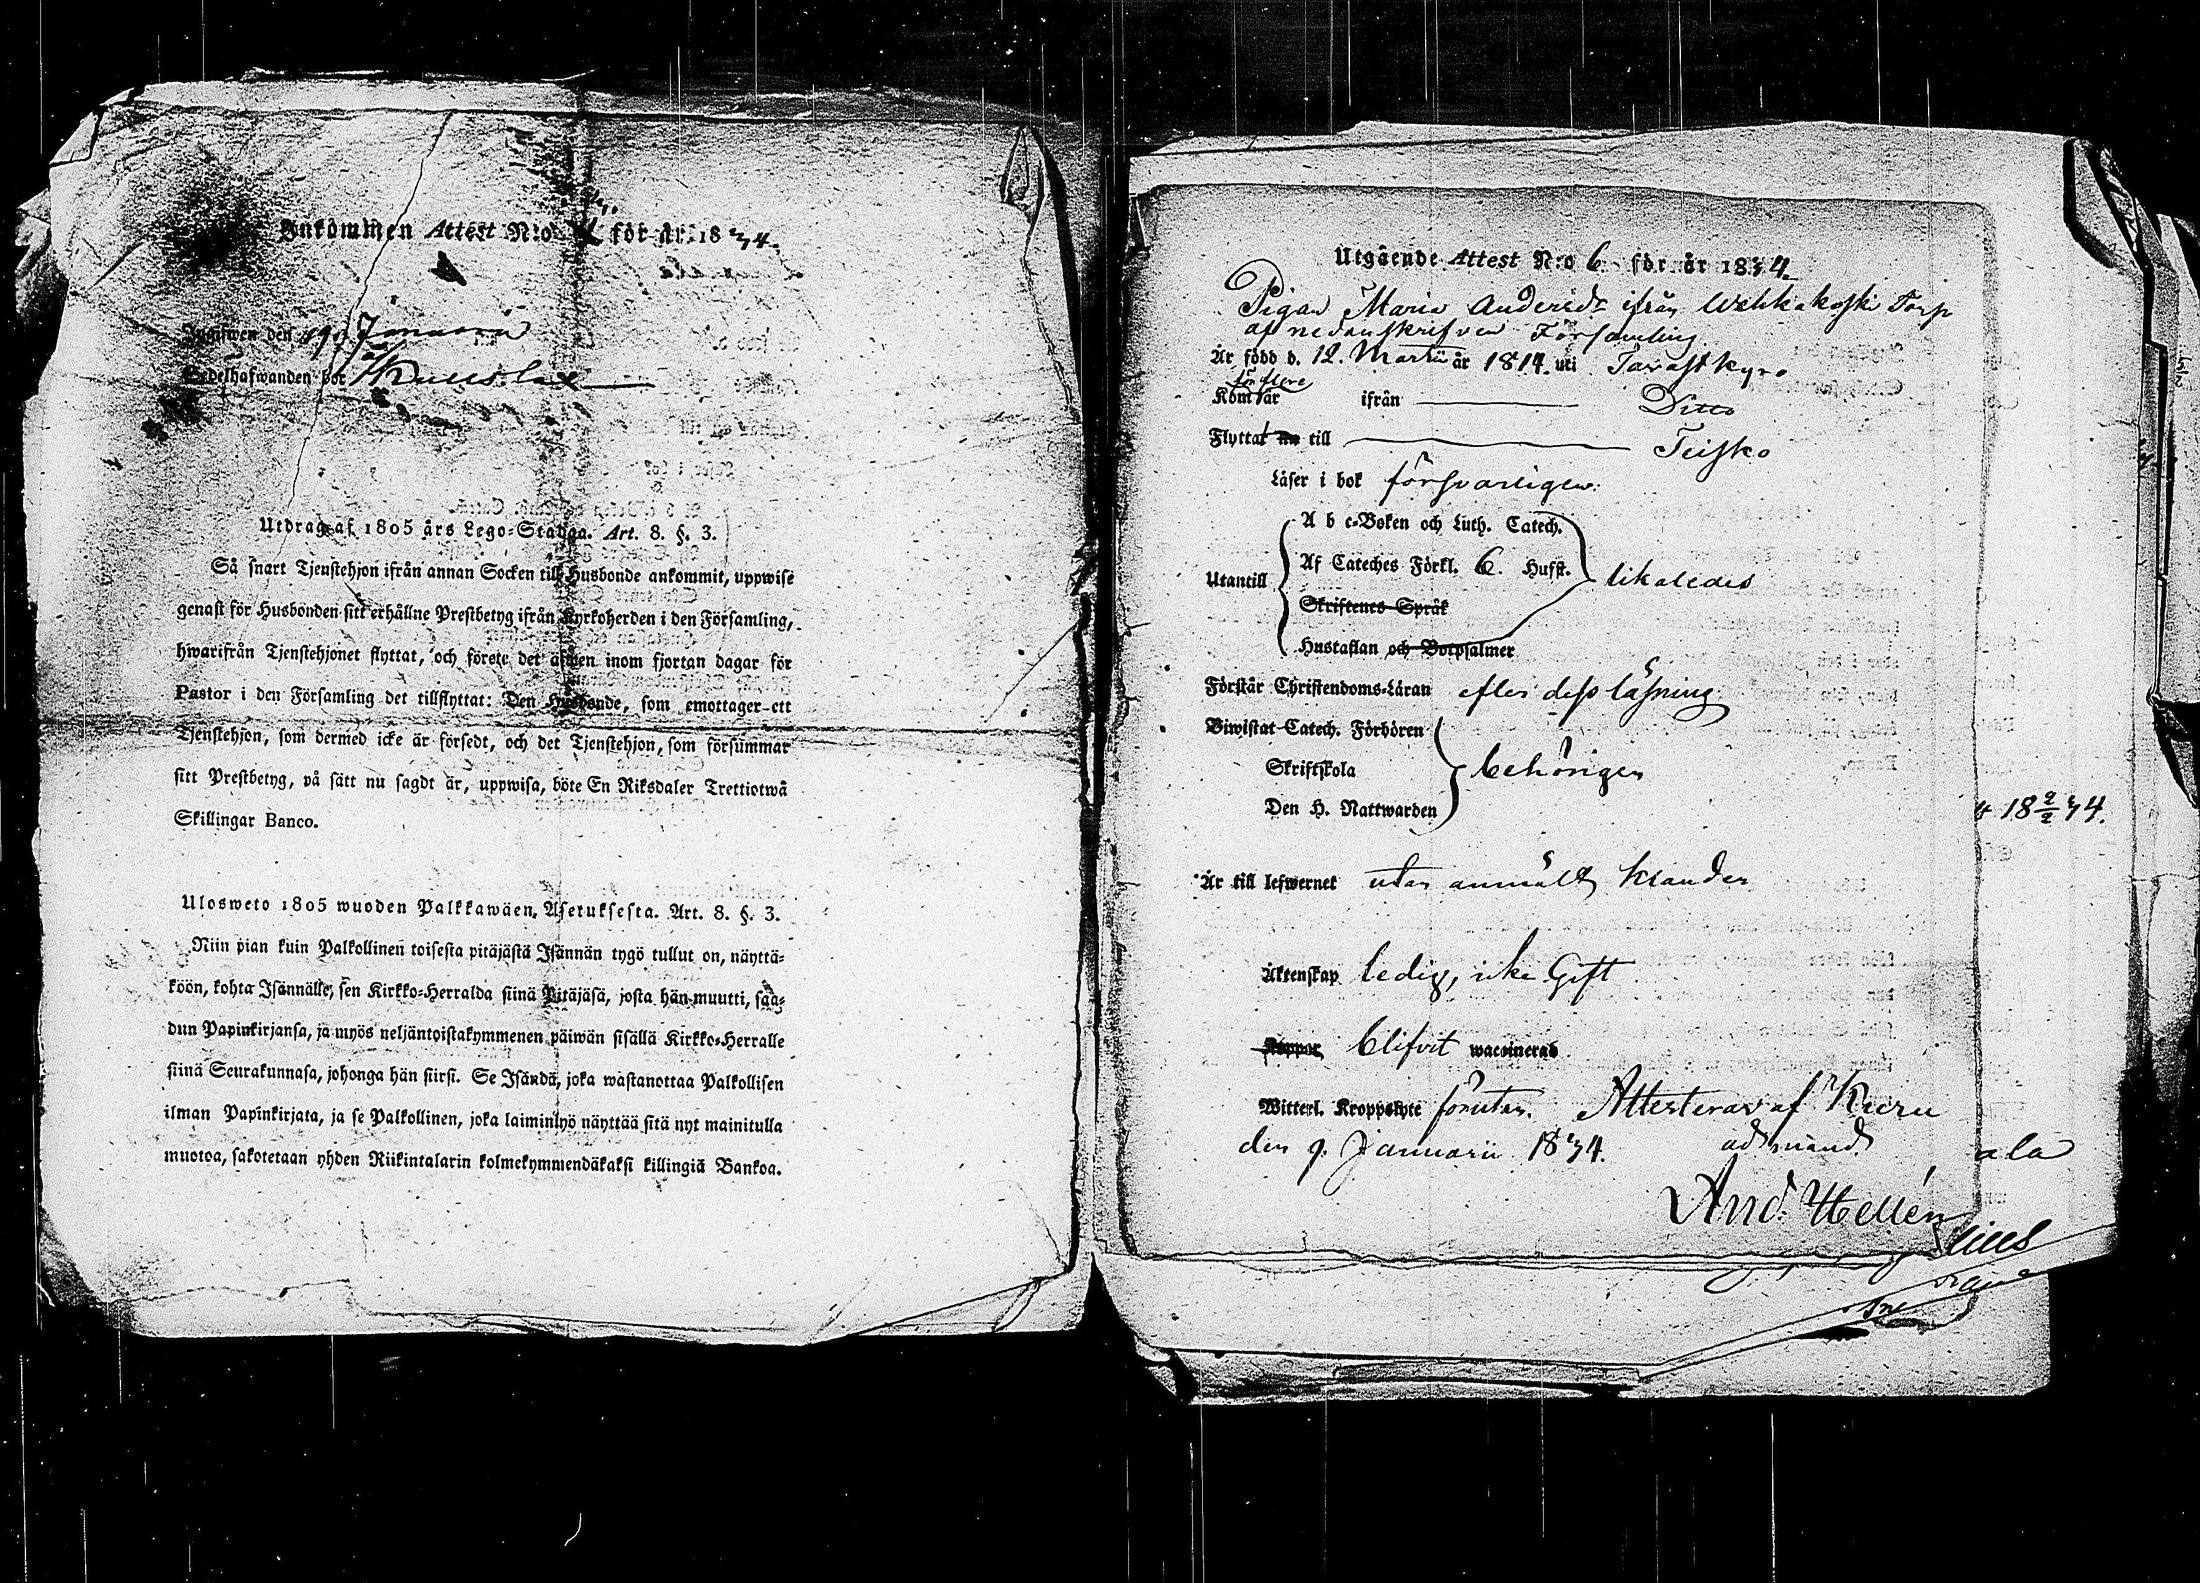 Inkommen Attest N:o för år 1834.
Ingifwen den 19 Januarii
Sedelhafwanden bor i Kuuslax
Utdrag af 1805 års Lego-Stadga. Art. 8. §. 3.
Så snart Tjenstehjon ifrån annan Socken till Husbonde ankommit, uppwise
genast för Husbonden sitt erhållne Prestbetyg ifrån Kyrkoherden i den Församling,
hwarifrån Tjenstehjonet flyttat, och förete det äfwen inom fjortan dagar för
Pastor i den Församling det tillflyttat: Den Husbonde, som emottager ett
Tjenstehjon, som dermed icke är försedt, och det Tjenstehjon, som försummar
sitt Prestbetyg, på sätt nu sagdt är, uppwisa, böte En Riksdaler Trettiotwå
Skillingar Banco.
Ulosweto 1805 wuoden Palkkawäen Asetuksesta. Art. 8. §. 3.
Niin pian kuin Palkollinen toisesta pitäjästä Isännän tygö tullut on, näyttä-
köön, kohta Isännälle, sen Kirkko-Herralda siinä Pitäjäsä, josta hän muutti, saa-
dun Papinkirjansa, ja myös neljäntoistakymmenen päiwän sisällä Kirkko-Herralle
siinä Seurakunnasa, johonga hän siirsi. Se Isändä, joka wastanottaa Palkollisen
ilman Papinkirjata, ja se Palkollinen, joka laiminlyö näyttää sitä nyt mainitulla
muotoa, sakotetaan yhden Riikintalarin kolmekymmendäkaksi killingiä Bankoa.
Utgående Attest N:o 6 för år 1834
Pigan Maria Andersdr ifrån Wehkakoski Torp
af nedanskrifven Församling
Är född d. 12. Martii år 1814. uti Tavastkyro
för flere
Kom år ifrån Ditto
Flyttat nu till Teisko
Läser i bok försvarligen.
A b c-Boken och Luth. Catech.
Af Cateches Förkl. 6. Hufst.
Utantill likaledes
Skriftenes Språk
Hustaflan och Botpsalmer
Förstår Christendoms-Läran efter dess läsning
Biwistat Catech. Förhören
Skriftskola behörigen
Den H. Nattwarden
18 9/2 34.
Är till lefwernet utan anmäldt klander
Äktenskap ledig, icke Gift
Koppor, blifvit waccinerad
Witterl. Kroppslyte förutan. Attesteras af Kuru
den 9. Januarii 1834. ad mand.
ala
And. Hellén